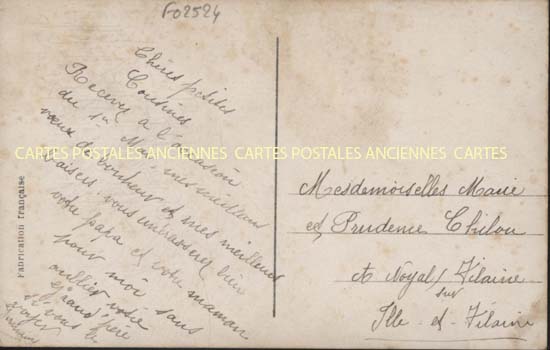 F02524
Chères petites
Cousines
Recevez à l'occasion
du 1er Mai, mes meilleurs
vœux de bonheur et mes meilleurs
baisers. vous embrasserez bien
votre papa et votre maman
pour moi sans
oublier votre
grand père
si vous le
voyez
Mesdemoiselles Marie
et Prudence Chilou
A Noyal / Vilaine
sur
Ille-et-Vilaine
Fabrication française
CARTES POSTALES ANCIENNES CARTES POSTALES ANCIENNES CARTES